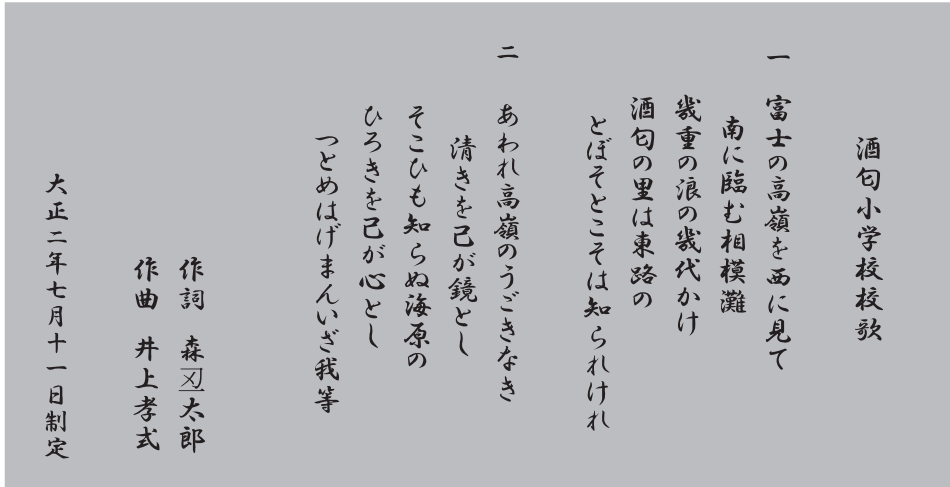 酒匂小学校校歌
一 富士の高嶺を西に見て
南に臨む相模灘
幾重の浪の幾代かけ
酒匂の里は東路の
とぼそとこそは知られけれ
二 あわれ高嶺のうごきなき
清きを己が鏡とし
そこひも知らぬ海原の
ひろきを己が心とし
つとめはげまんいざ我等
作詞 森 太郎
作曲 井上孝式
大正二年七月十一日制定